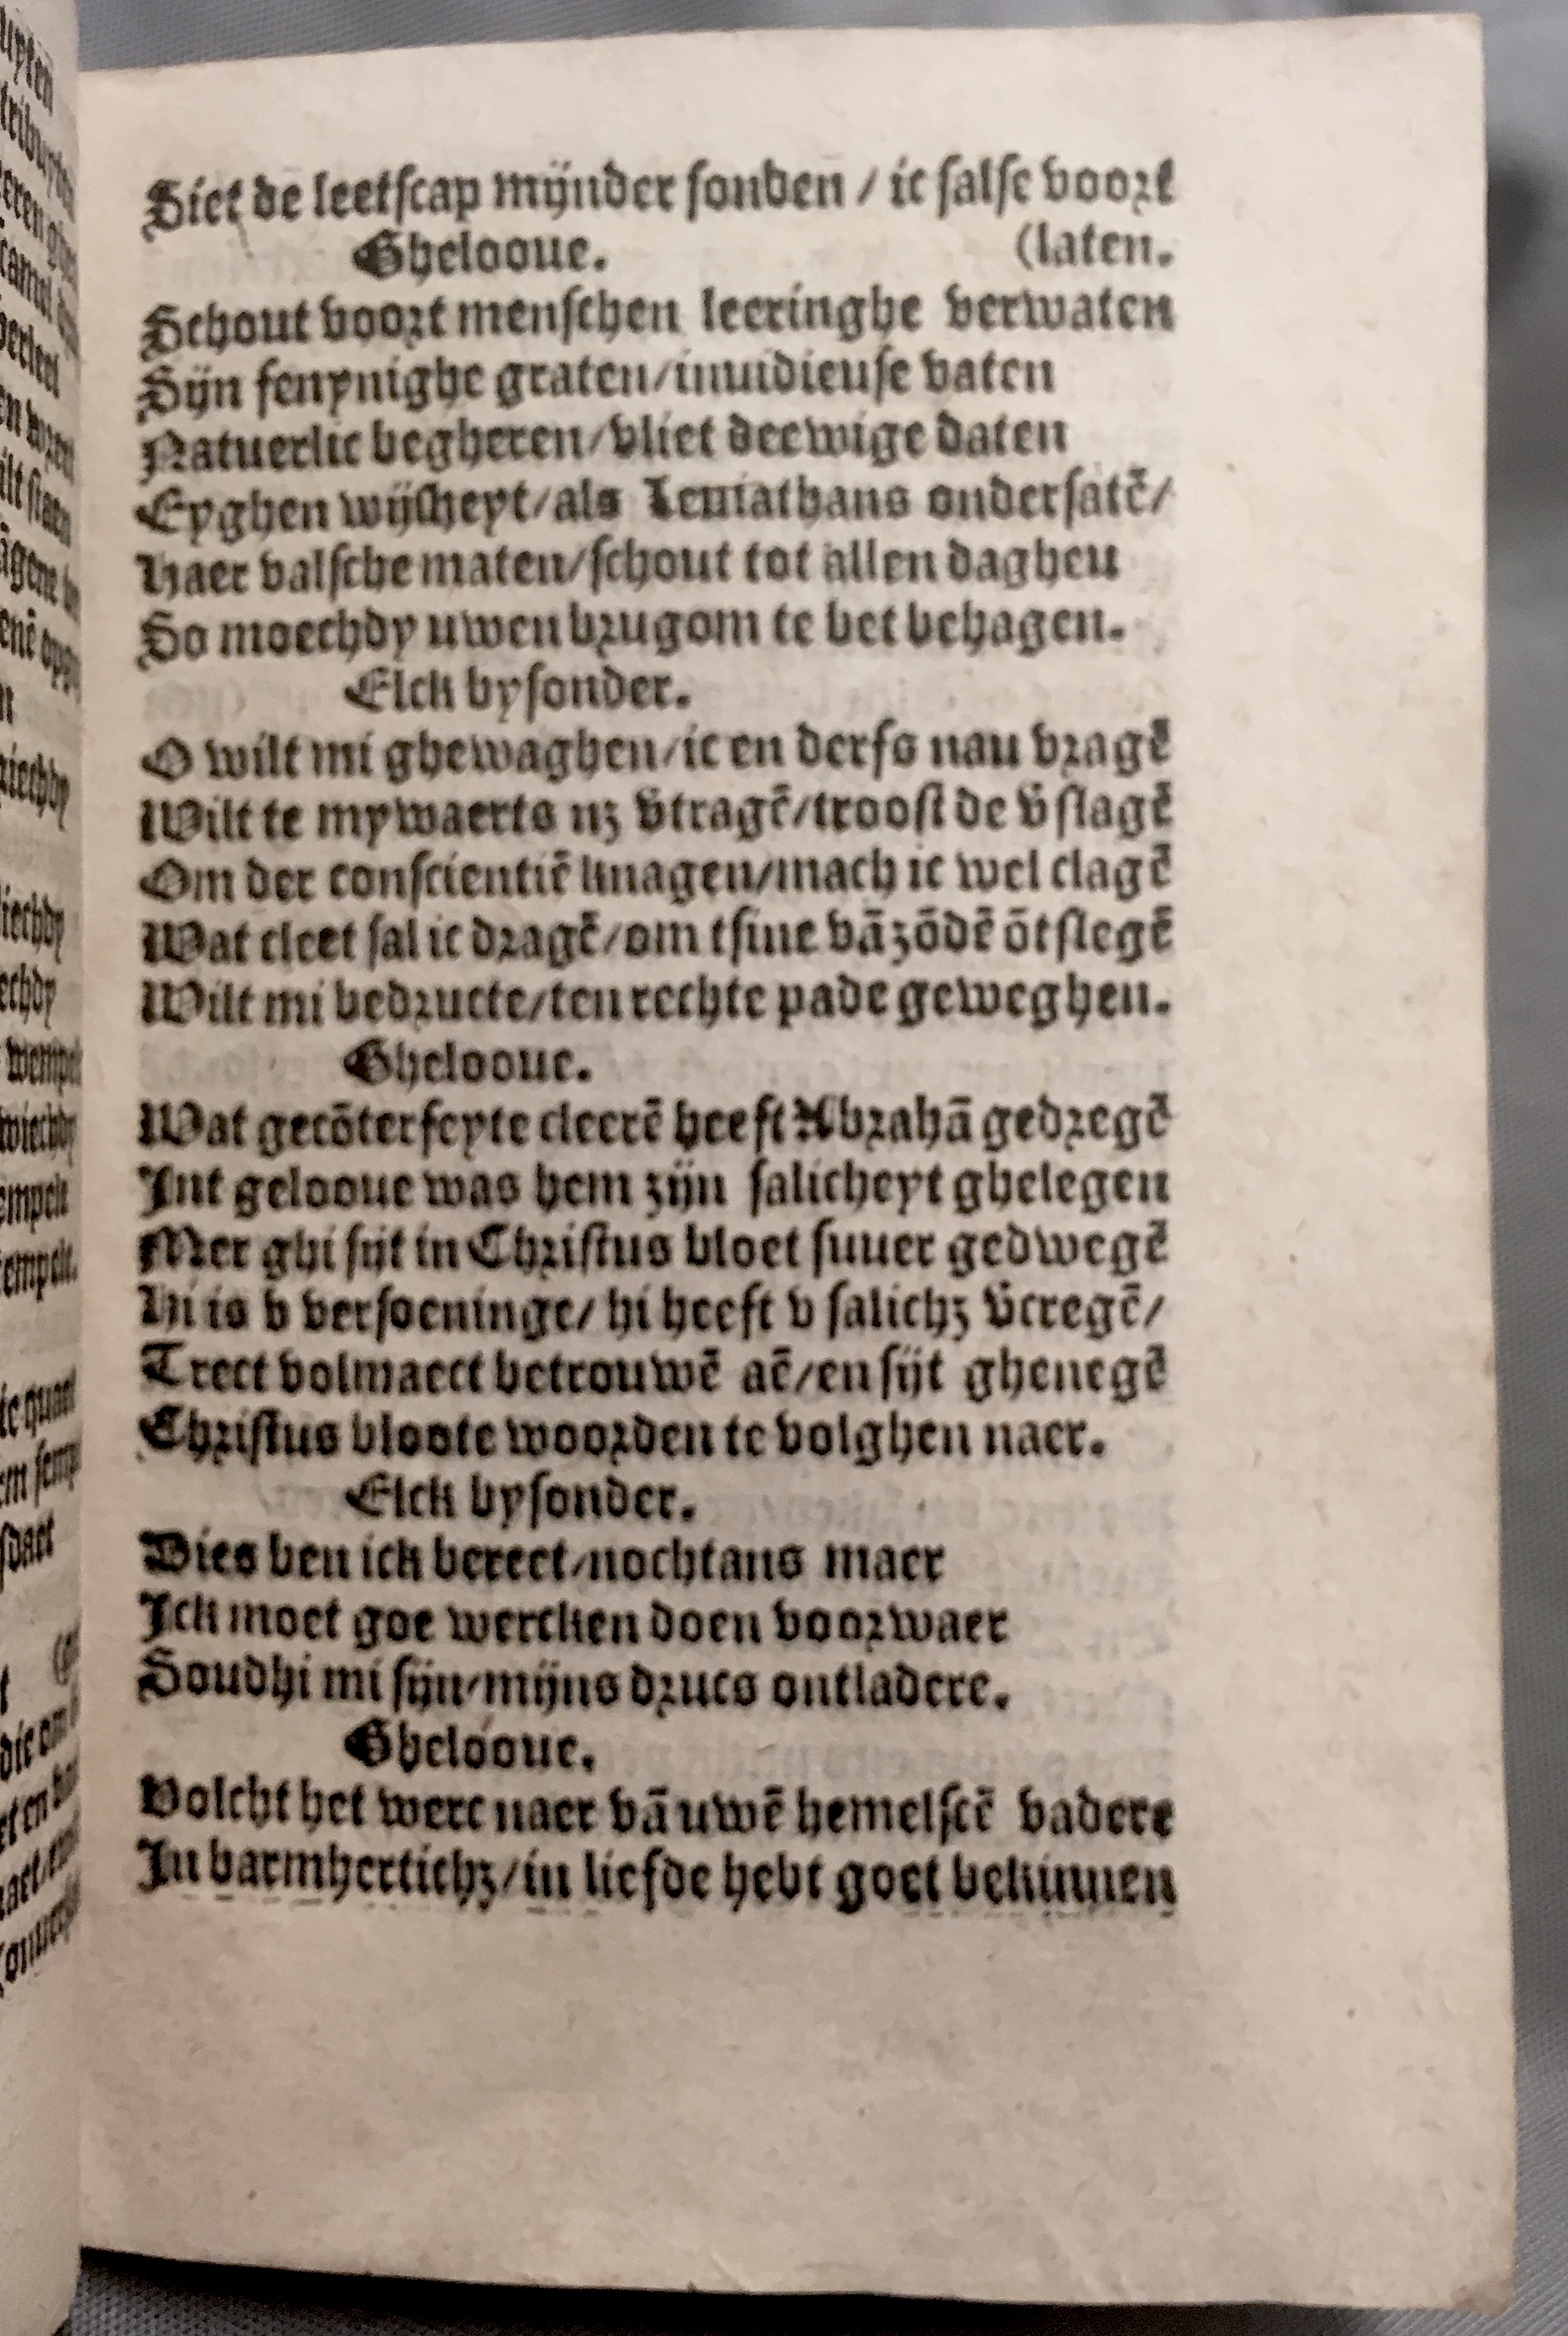 Siet de leetscap mijnder sonden / ic salse voort
Ghelooue. (laten.
Schout voort menschen leeringhe verwaten
Sijn fenynighe graten/inuidieuse vaten
Natuerlic begheren/vliet deewige daten
Eyghen wijsheyt/als Leuiathans ondersatē/
Haer valsche maten/schout tot allen daghen
So moechdy uwen brugom te bet behagen.
Elck bysonder.
O wilt mi ghewaghen/ic en derfs nau vragē
Wilt te mywaerts nz v̄tragē/troost de v̄slagē
Om der conscientiē knagen/mach ic wel clagē
Wat cleet sal ic dragē/om tsine vāzōdē ōtslegē
Wilt mi bedructe/ten rechte pade geweghen.
Ghelooue.
Wat gecōterfeyte cleerē heeft Abrahā gedregē
Int gelooue was hem zijn salicheyt ghelegen
Mer ghi sijt in Christus bloet suuer gedwegē
Hi is v versoeninge/ hi heeft v salichz v̄cregē/
Trect volmaect betrouwē aē/en sijt ghenegē
Christus bloote woorden te volghen naer.
Elck bysonder.
Dies ben ick bereet/nochtans maer
Ick moet goe wercken doen voorwaer
Soudhi mi sijn/mijns drucs ontladere.
Ghelooue.
Volcht het werc naer vā uwē hemelscē vadere
In barmhertichz/in liefde hebt goet bekinnen